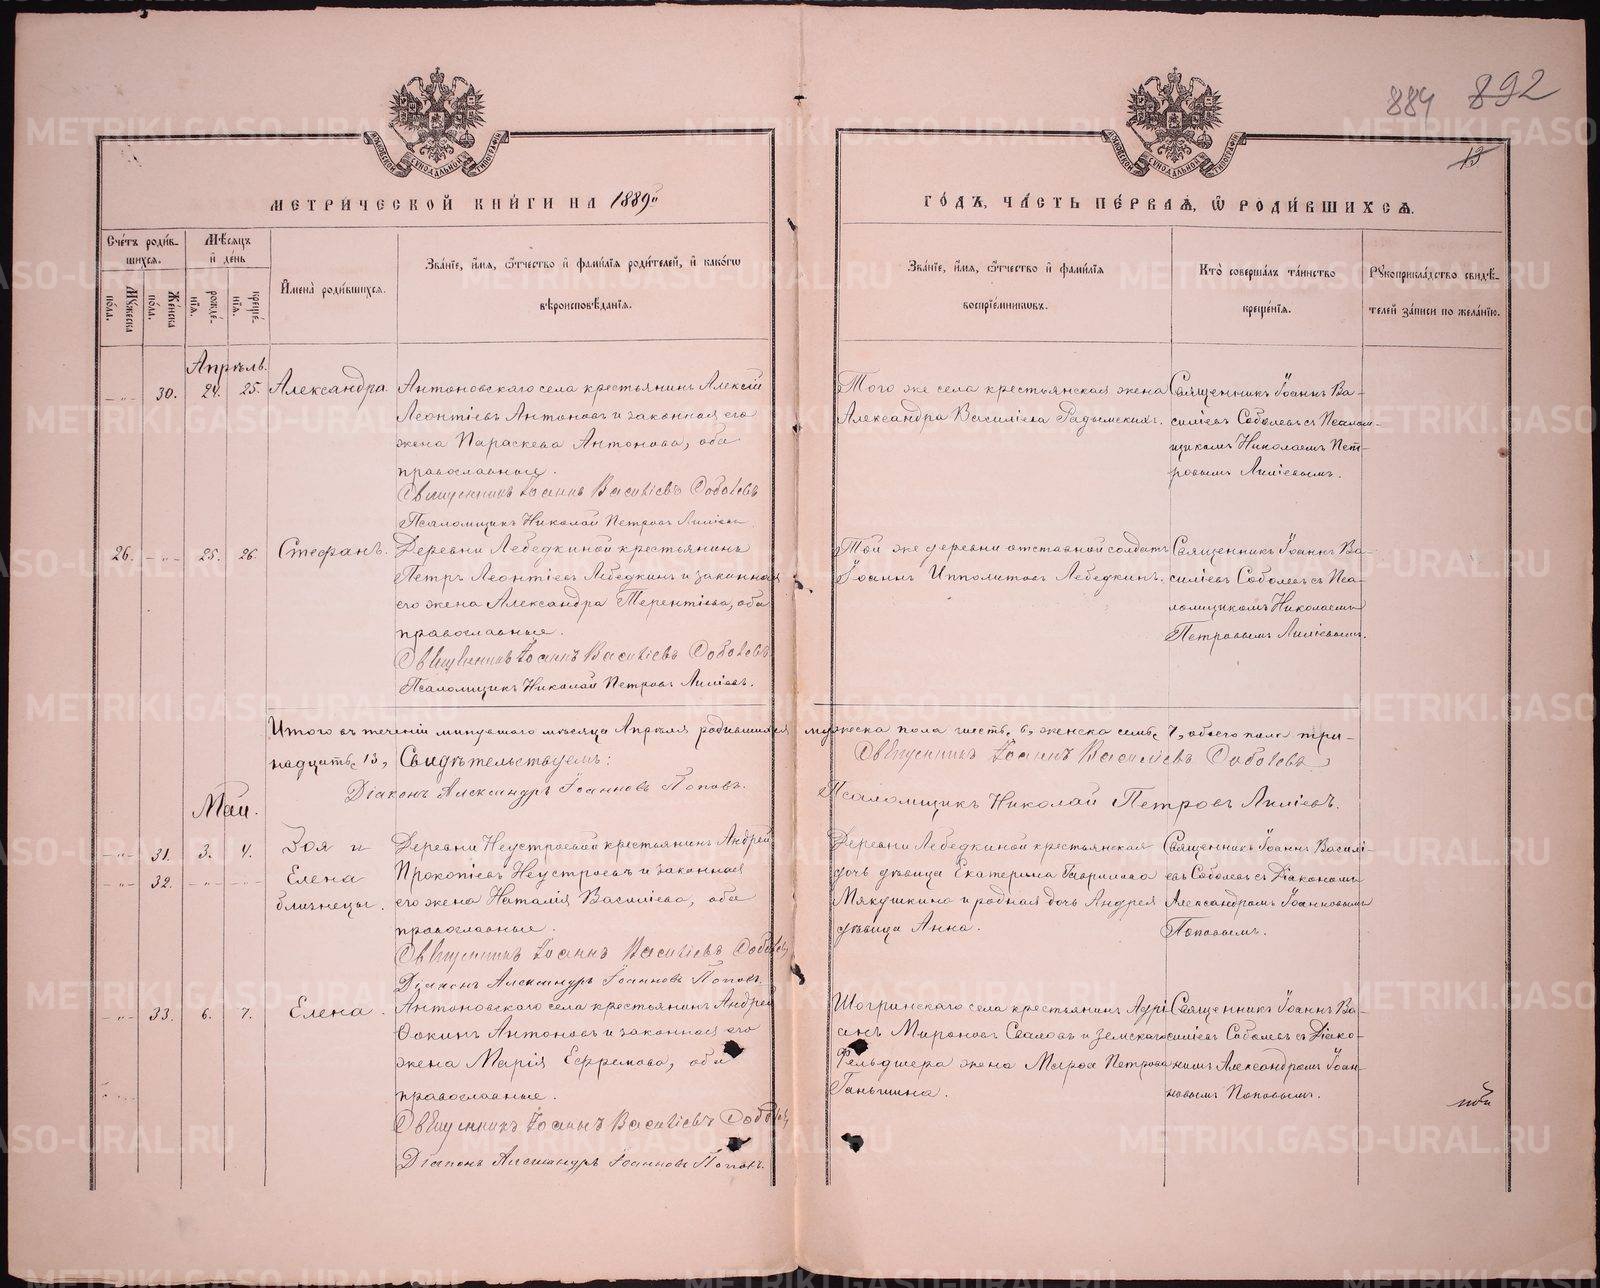 884 892
13
МЕТРИЧЕСКОЙ КНИГИ НА 1889й
ГОДЪ, ЧАСТЬ ПЕРВАЯ, Ѡ РОДИВШИХСЯ.
Счетъ родив-
шихся.
Мѣсяцъ
и день
Мужеска
пола.
Женска
пола.
рожде-
нія.
креще-
нія.
Имена родившихся.
Званіе, имя, ѿчество и фамилія родителей, и какогѡ
вѣроисповѣданія.
Званіе, имя, ѿчество и фамилія
воспріемниковъ.
Кто совершалъ таинство
крещенія.
Рукоприкладство свидѣ-
телей записи по желанію.
Апрѣль.
30. 24. 25. Александра.
Антоновскаго села крестьянинъ Алексій
Леонтіевъ Антоновъ и законная его
жена Параскева Антонова, оба
православные.
Священникъ Іоаннъ Василіевъ Соболевъ
Псаломщикъ Николай Петровъ Лиліевъ
Того же села крестьянская жена
Александра Василіева Радымскихъ.
Священникъ Іоаннъ Ва-
силіевъ Соболевъ съ Псалом-
щикомъ Николаемъ Пет-
ровымъ Лиліевымъ.
26. 25. 26. Стефанъ.
Деревни Лебедкиной крестьянинъ
Петръ Леонтіевъ Лебедкинъ и законная
его жена Александра Терентіева, оба
православные.
Священникъ Іоаннъ Василіевъ Соболевъ
Псаломщикъ Николай Петровъ Лиліевъ.
Той же деревни отставной солдатъ
Іоаннъ Ипполитовъ Лебедкинъ.
Священникъ Іоаннъ Ва-
силіевъ Соболевъ съ Пса-
ломщикомъ Николаемъ
Петровымъ Лиліевымъ.
Итого въ теченіи минувшаго мѣсяца Апрѣля родившихся мужеска пола шесть, 6, женска семь, 7, обоего пола три-
надцать, 13, Свидѣтельствуемъ:
Священникъ Іоаннъ Василіевъ Соболевъ
Діаконъ Александръ Іоанновъ Поповъ.
Псаломщикъ Николай Петровъ Лиліевъ.
Май.
31. 3. 4. Зоя и
32. Елена
близнецы.
Деревни Неустроевой крестьянинъ Андрей
Прокопіевъ Неустроевъ и законная
его жена Наталія Василіева, оба
православные.
Священникъ Іоаннъ Василіевъ Соболевъ
Діаконъ Александръ Іоанновъ Поповъ.
Деревни Лебедкиной крестьянская
дочь дѣвица Екатерина Гаврилова
Мякушкина и родная дочь Андрея
дѣвица Анна.
Священникъ Іоаннъ Василі-
евъ Соболевъ съ Діакономъ
Александромъ Іоанновымъ
Поповымъ.
33. 6. 7. Елена.
Антоновскаго села крестьянинъ Андрей
Ѳокинъ Антоновъ и законная его
жена Марія Ефремова, оба
православные.
Священникъ Іоаннъ Василіевъ Соболевъ
Діаконъ Александръ Іоанновъ Поповъ.
Шогринскаго села крестьянинъ Адрі-
анъ Мироновъ и Земскаго
Фельдшера жена Марфа Петрова
Ганьшина.
Священникъ Іоаннъ Ва-
силіевъ Соболевъ съ Діако-
номъ Александромъ Іоан-
новымъ Поповымъ.
METRIKI.GASO-URAL.RU